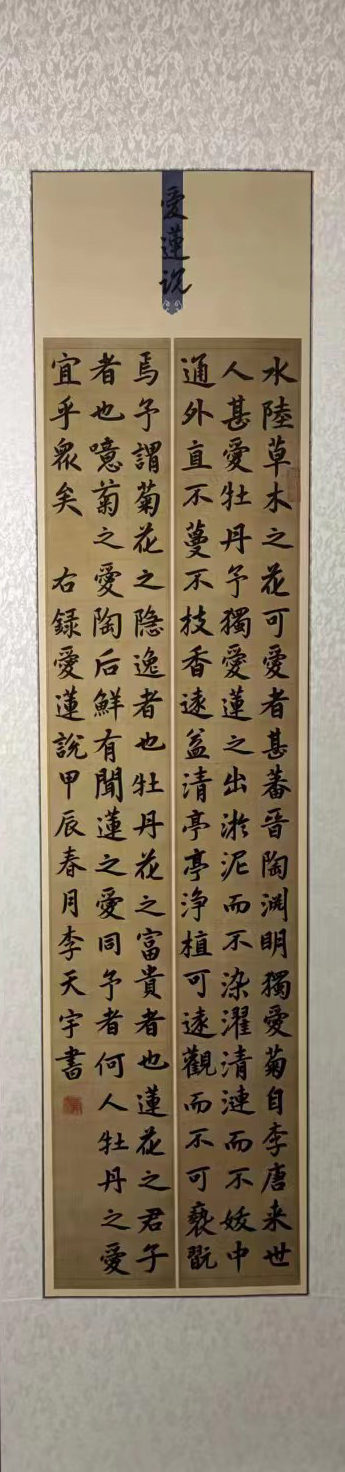 愛蓮説
水陸草木之花可愛者甚蕃晋陶淵明獨愛菊自李唐来世
人甚愛牡丹予獨愛蓮之出淤泥而不染濯清漣而不妖中
通外直不蔓不枝香遠益清亭亭净植可遠觀而不可褻翫
焉予謂菊花之隐逸者也牡丹花之富貴者也蓮花之君子
者也噫菊之愛陶后鮮有聞蓮之愛同予者何人牡丹之愛
宜乎眾矣 右録愛蓮説甲辰春月李天宇書